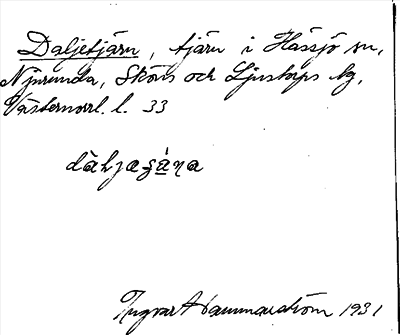 Daljetjärn, tjärn i Hässjö sn,
Njurunda, Sköns och Ljustorps tg,
Västernorrl. l. 33
Ingvar Hammarström 1931